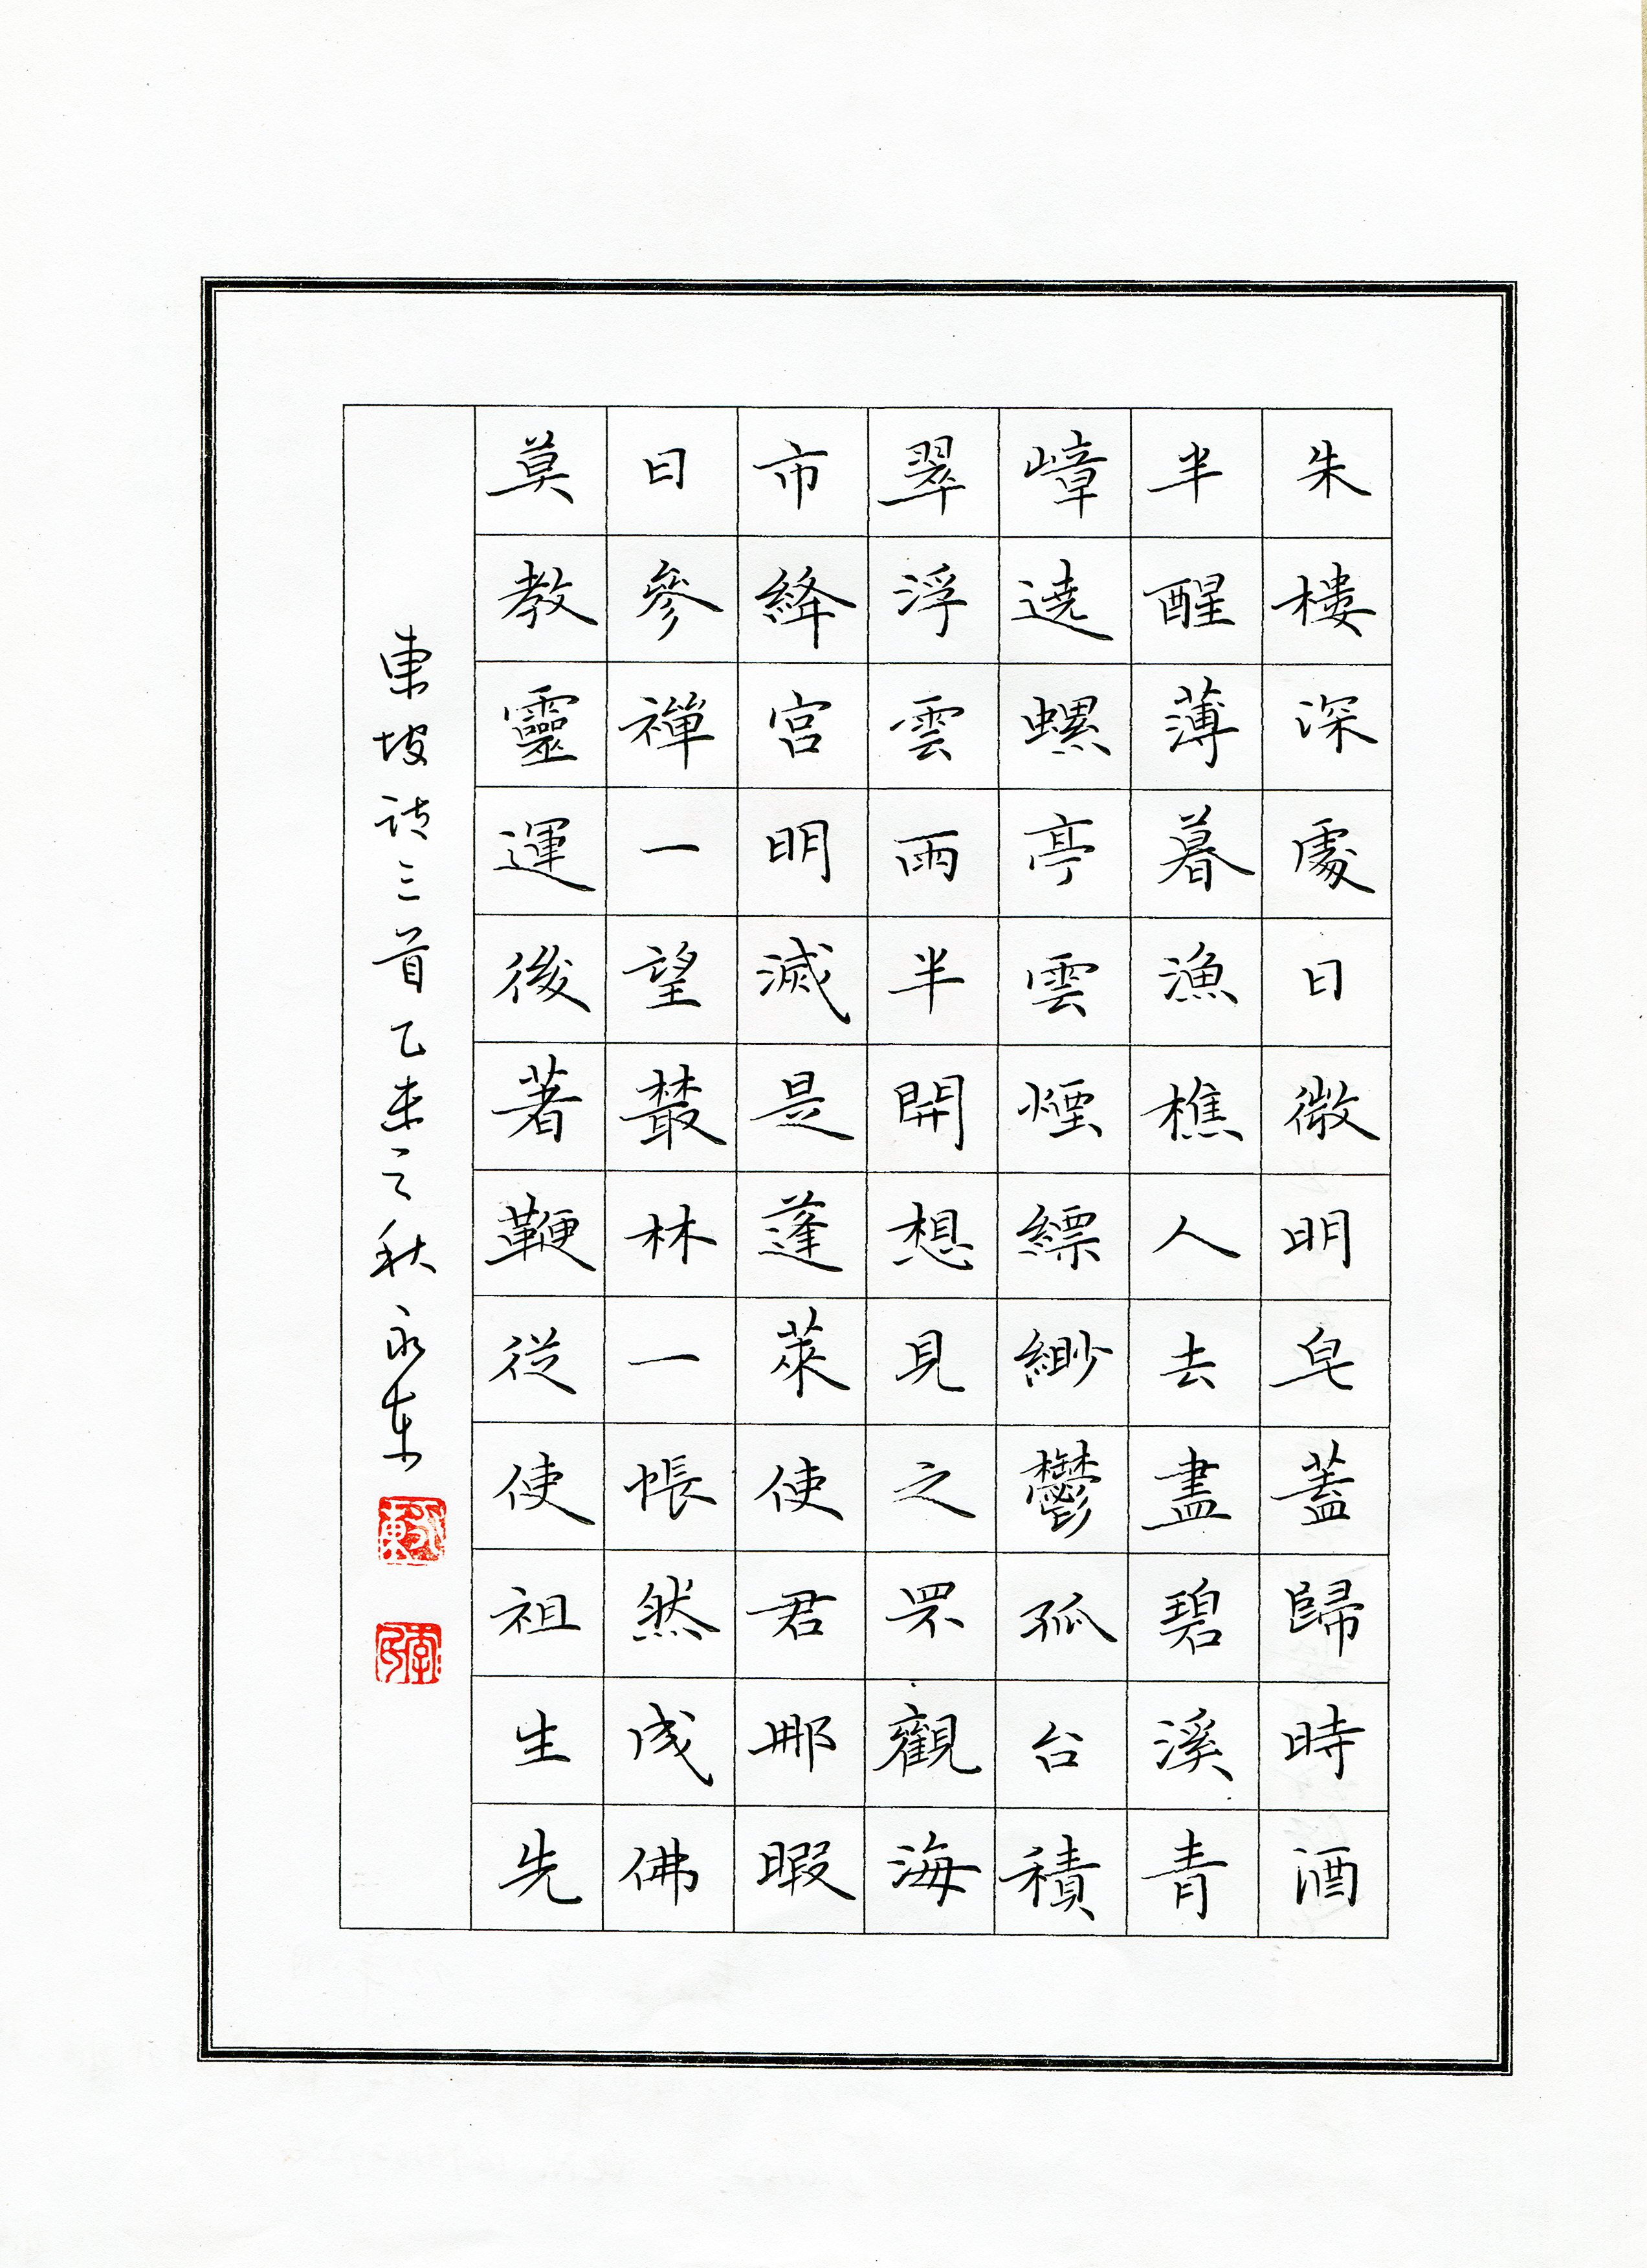 朱樓深處日微明皂蓋歸時酒
半醒薄暮漁樵人去盡碧溪青
嶂遶螺亭雲煙縹緲鬱孤台積
翠浮雲雨半開想見之罘觀海
市絳宮明滅是蓬萊使君那暇
日參禪一望叢林一悵然成佛
莫教靈運後著鞭從使祖生先
東坡詩三首乙未之秋永東